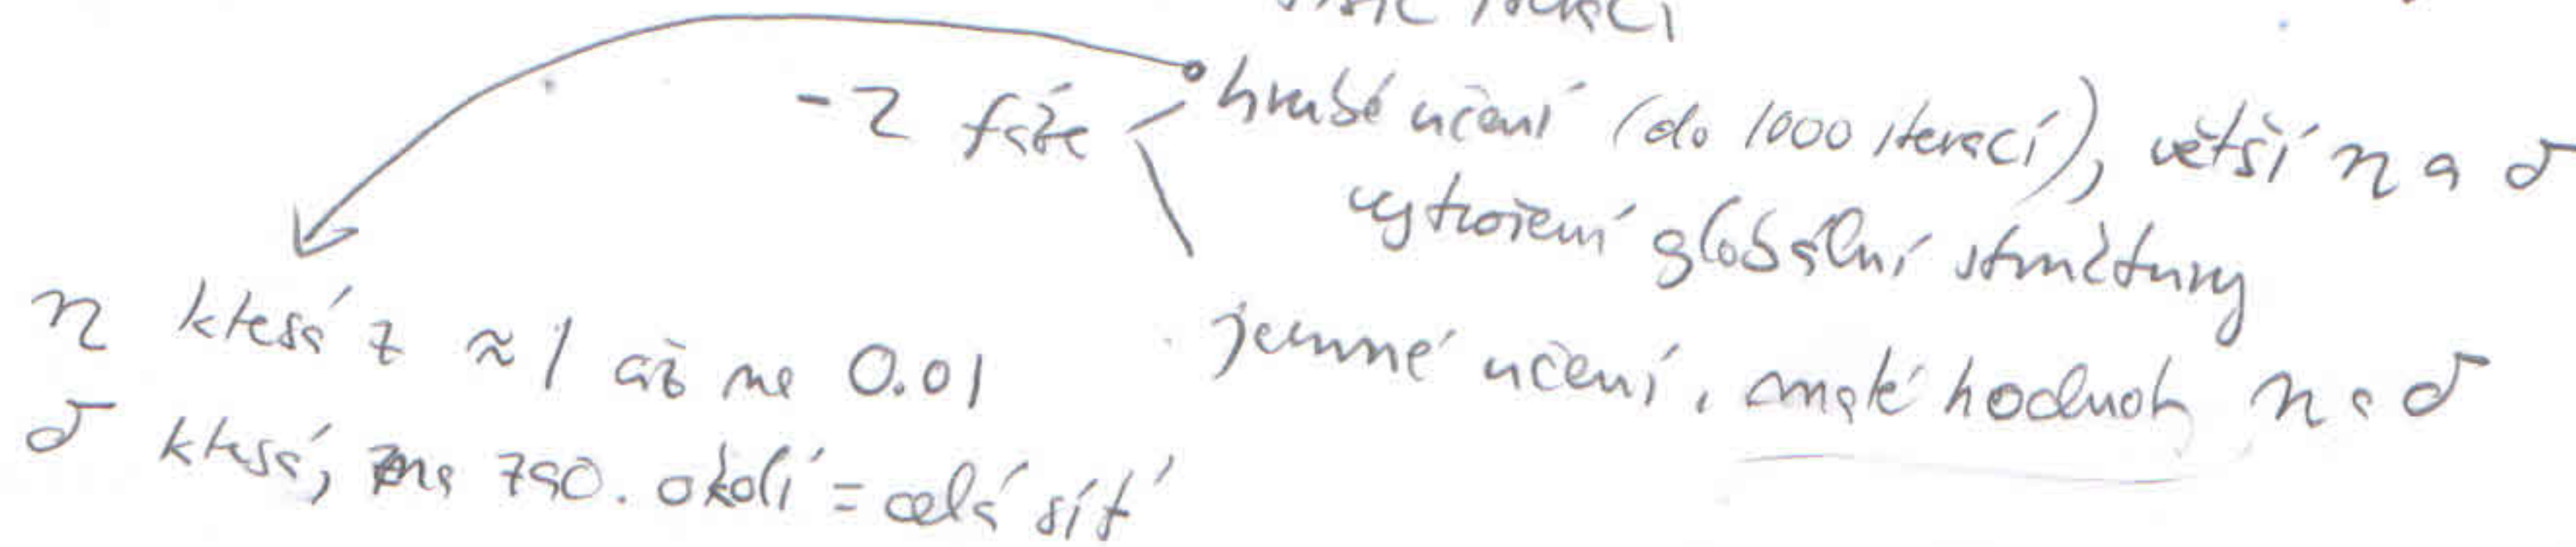 iterací
- 2 fáze
hrubé učení (do 1000 iterací), větší η a σ
vytvoření globální struktury
jemné učení, malé hodnoty η a σ
η klesá z ≈ 1 až na 0.01
σ klesá, na zač. okolí = celá síť